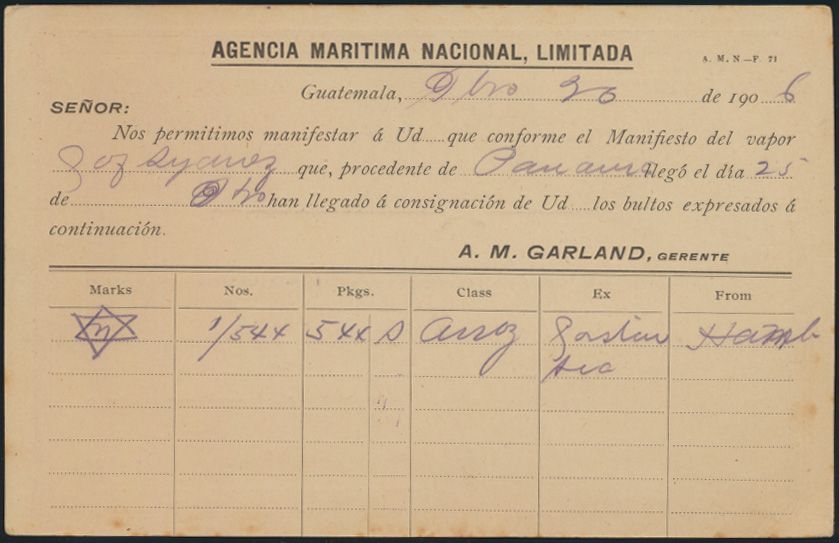 AGENCIA MARITIMA NACIONAL, LIMITADA
A. M. N.—F. 71
Guatemala, 9bro de 1906
SEÑOR:
Nos permitimos manifestar á Ud.....que conforme el Manifiesto del vapor
que, procedente de Panama llegó el día 25
de 9bro han llegado á consignación de Ud.....los bultos expresados á
continuación.
A. M. GARLAND, GERENTE
Marks Nos. Pkgs. Class Ex From
n 1/544 544 S Arroz Hamb